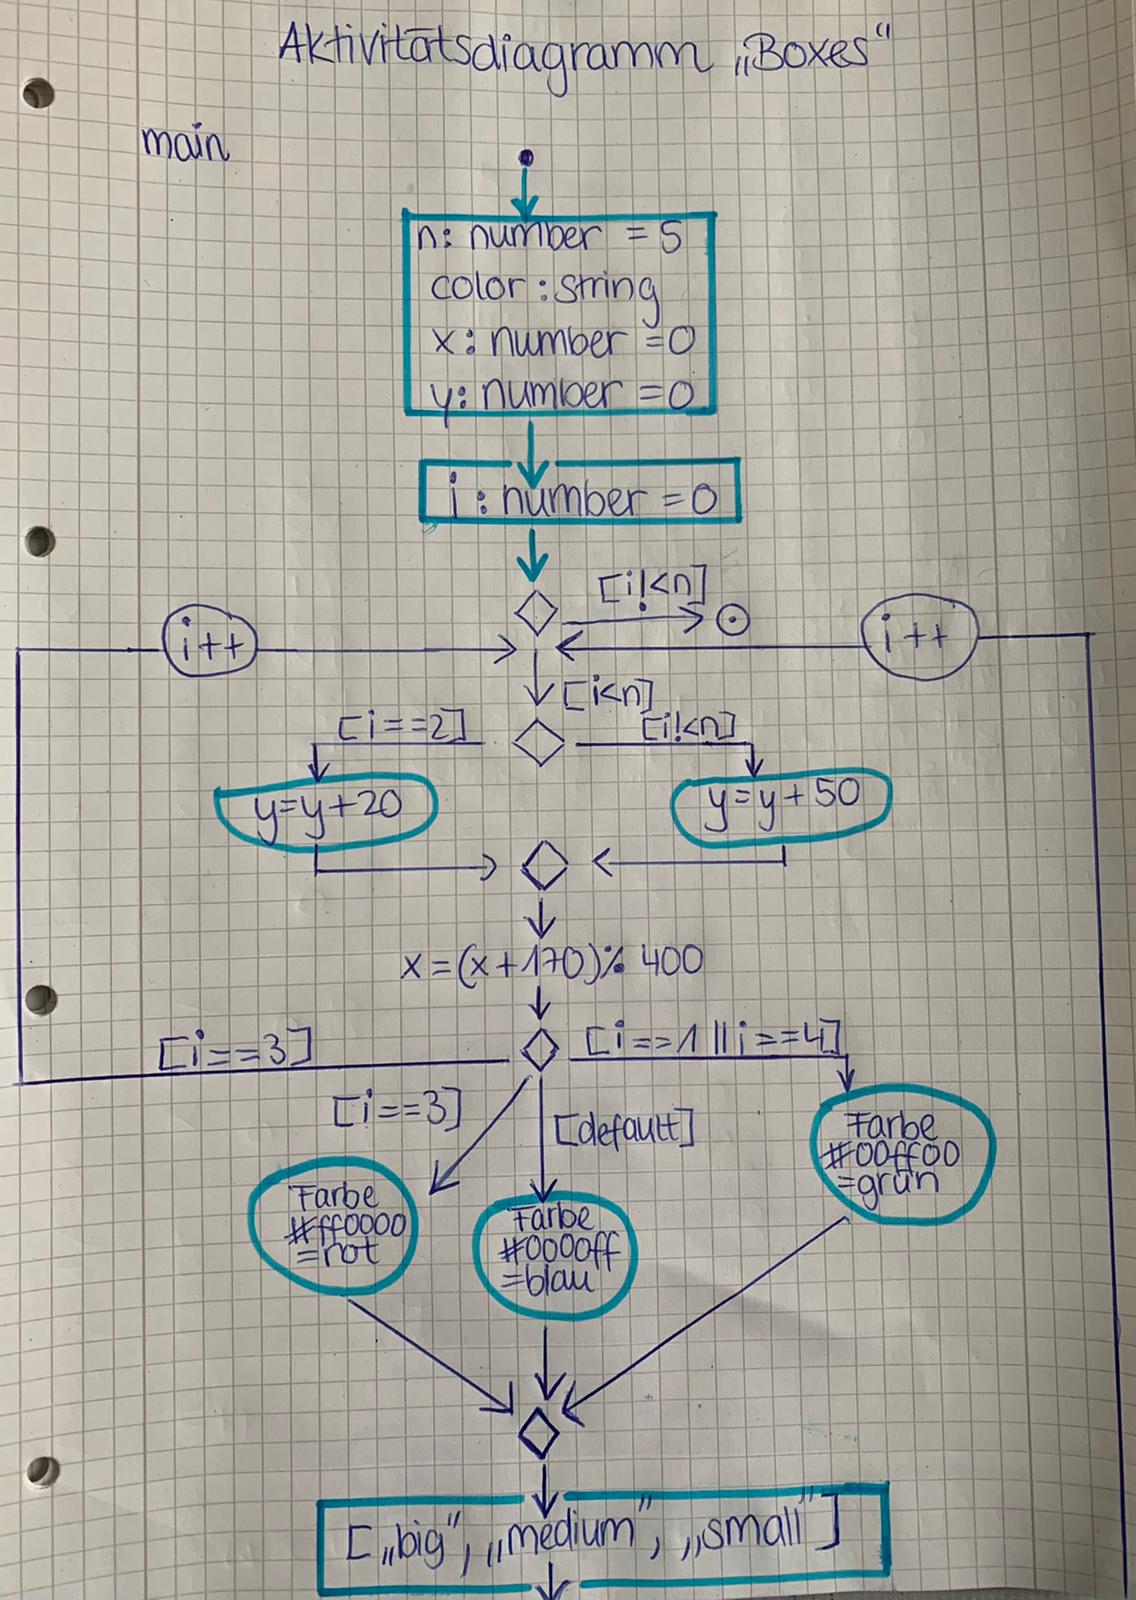 Aktivitätsdiagramm „Boxes“
main
n: number = 5
color : string
x: number =0
y: number =0
i : number =0
[i!<n]
i++
i++
[i<n]
[i==2]
[i!<n]
y=y+20
y=y+50
x=(x+170)% 400
[i==3]
[i==1 || i==4]
[i==3]
[default]
Farbe
#00ff00
=grün
Farbe
#ff0000
=rot
Farbe
#0000ff
=blau
[„big“, „medium”, „small”]